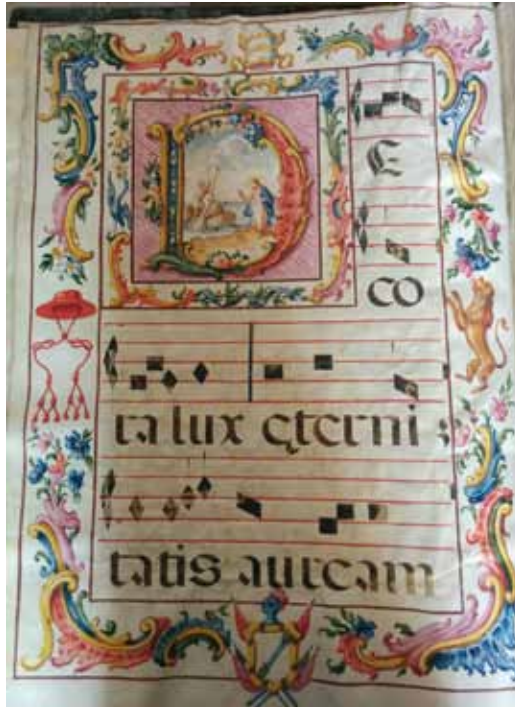 DE
co
ra lux ęterni
tatis auream